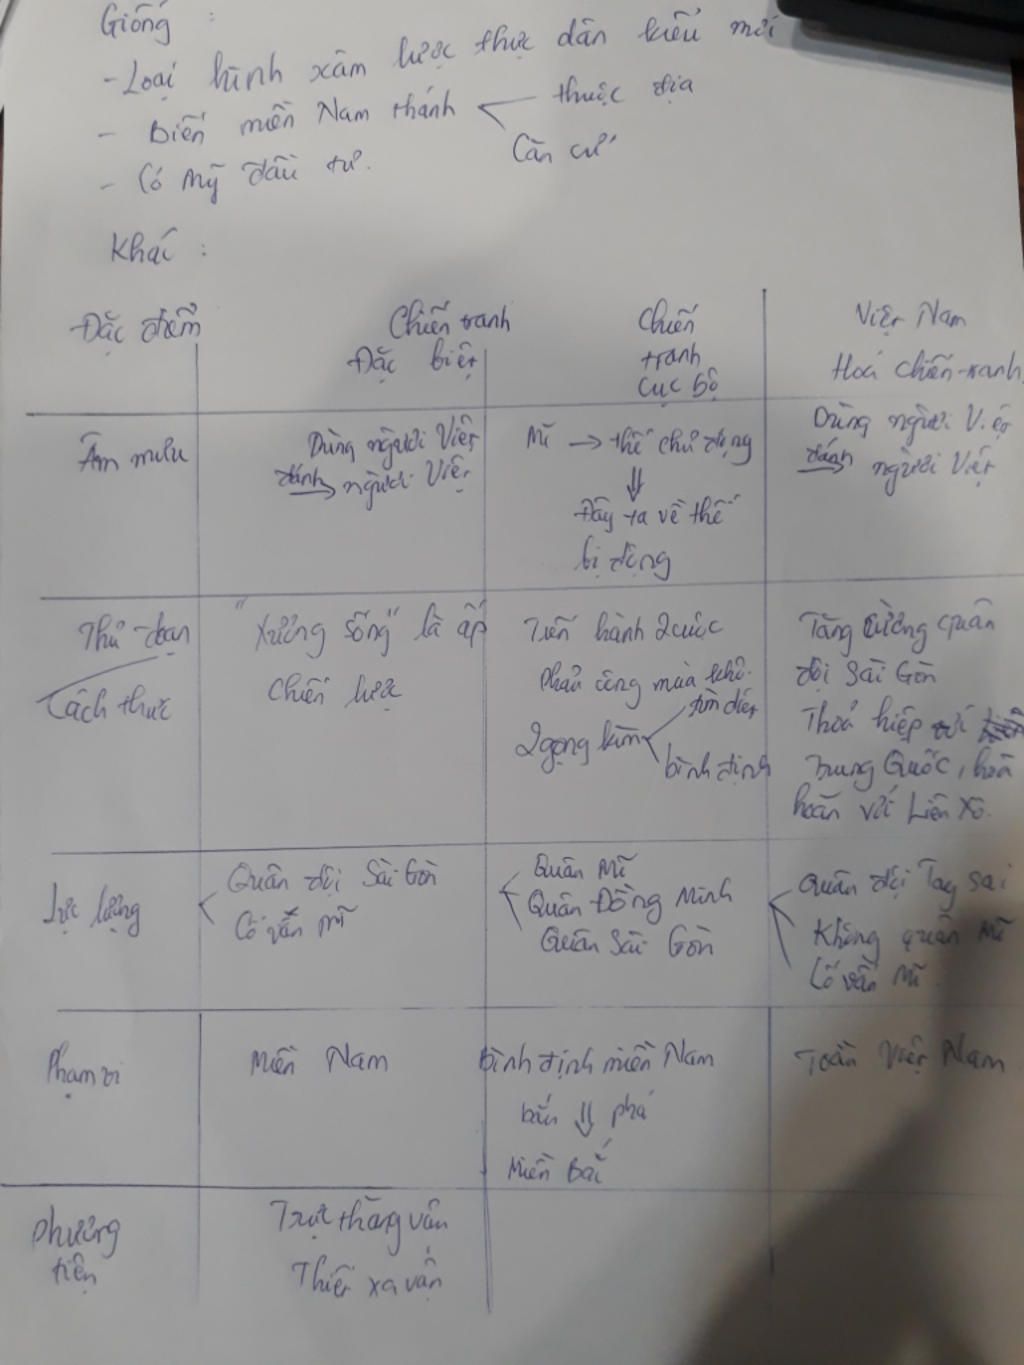 Giống :
- Loại hình xâm lược thực dân kiểu mới
- Biến miền Nam thành
thuộc địa
Căn cứ
- Có Mỹ đầu tư.
Khác :
Đặc điểm
Chiến tranh
Đặc biệt
Chiến
tranh
cục bộ
Việt Nam
Hoá chiến tranh
Âm mưu
Dùng người Việt
đánh người Việt
Mĩ → thế chủ động
⇓
Đẩy ta về thế
bị động
Dùng người Việt
đánh người Việt
Thủ đoạn
Cách thức
"Xương sống" là ấp
chiến lược
Tiến hành 2 cuộc
phản công mùa khô.
2 gọng kìm
tìm diệt
bình định
Tăng cường quân
đội Sài Gòn
Thoả hiệp với
Trung Quốc, hoà
hoãn với Liên Xô.
Lực lượng
Quân đội Sài Gòn
Cố vấn Mĩ
Quân Mĩ
Quân Đồng Minh
Quân Sài Gòn
Quân đội Tay sai
Không quân Mĩ
Cố vấn Mĩ.
Phạm vi
Miền Nam
Bình định miền Nam
bắn ⇓ phá
Miền Bắc
Toàn Việt Nam
Phương
tiện
Trực thăng vận
Thiết xa vận